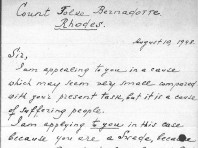 Count Folke Bernadotte.
Rhodes.
August 10, 1948.
Sir,
I am appealing to you in a cause
which may seem very small compared
with your present task, but it is a cause
of suffering people.
I am applying to you in this case
because you are a Swede, because